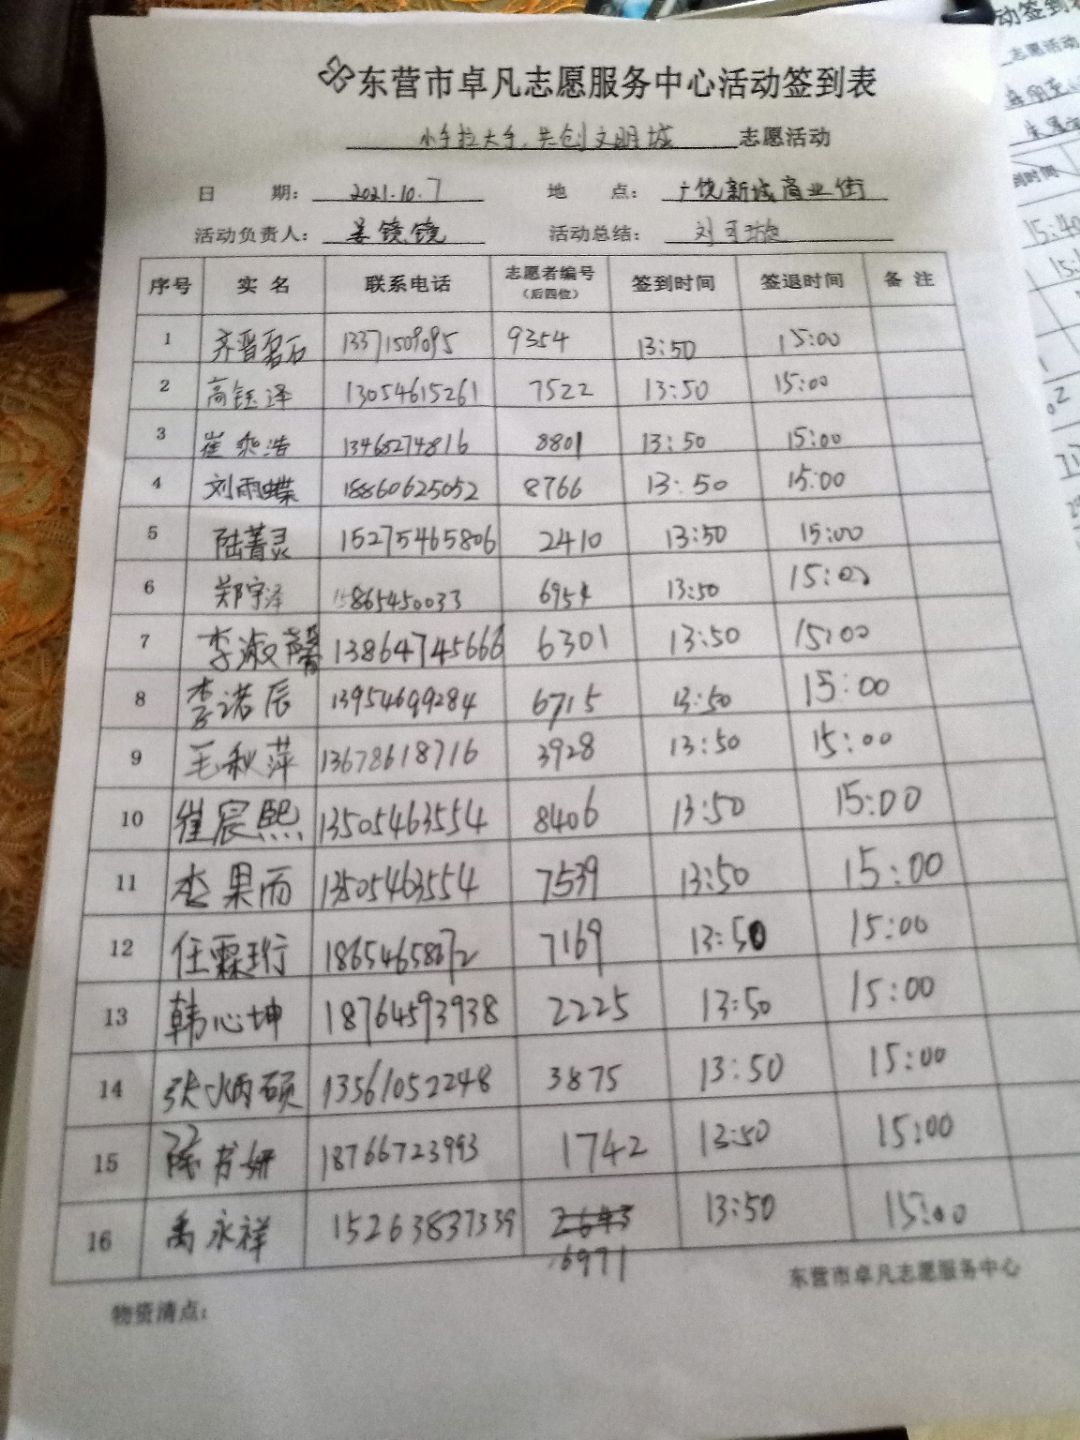 东营市卓凡志愿服务中心活动签到表
小手拉大手，共创文明城 志愿活动
日 期： 2021.10.7 地 点： 广饶新城商业街
活动负责人： 姜镜镜 活动总结： 刘
序号 实名 联系电话 志愿者编号（后四位） 签到时间 签退时间 备注
1 齐晋磊石 13371509095 9354 13:50 15:00
2 高钰泽 13054615261 7522 13:50 15:00
3 崔奕浩 13468274816 8801 13:50 15:00
4 刘雨蝶 18860625052 8766 13:50 15:00
5 陆菁灵 15275465806 2410 13:50 15:00
6 郑宇泽 15865450033 6954 13:50 15:00
7 李淑馨 13864745666 6301 13:50 15:00
8 李诺辰 13954699284 6715 13:50 15:00
9 毛秋萍 13678618716 3928 13:50 15:00
10 崔宸熙 13505463554 8406 13:50 15:00
11 李果而 13505463554 7539 13:50 15:00
12 任霖珩 18654658672 7169 13:50 15:00
13 韩心坤 18764593938 2225 13:50 15:00
14 张炳硕 13561052248 3875 13:50 15:00
15 陈芳妍 18766723993 1742 13:50 15:00
16 禹永祥 15263837339 2643 13:50 15:00
6971
东营市卓凡志愿服务中心
物资清点：
动签到表
志愿活动
到时间
15:40